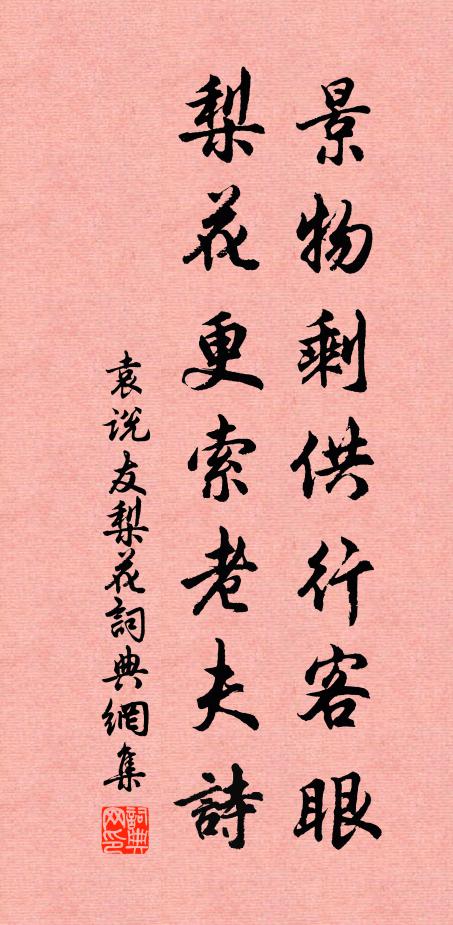 景物剩供行客眼
梨花更索老夫詩
袁说友梨花詞典網集
詞典网印